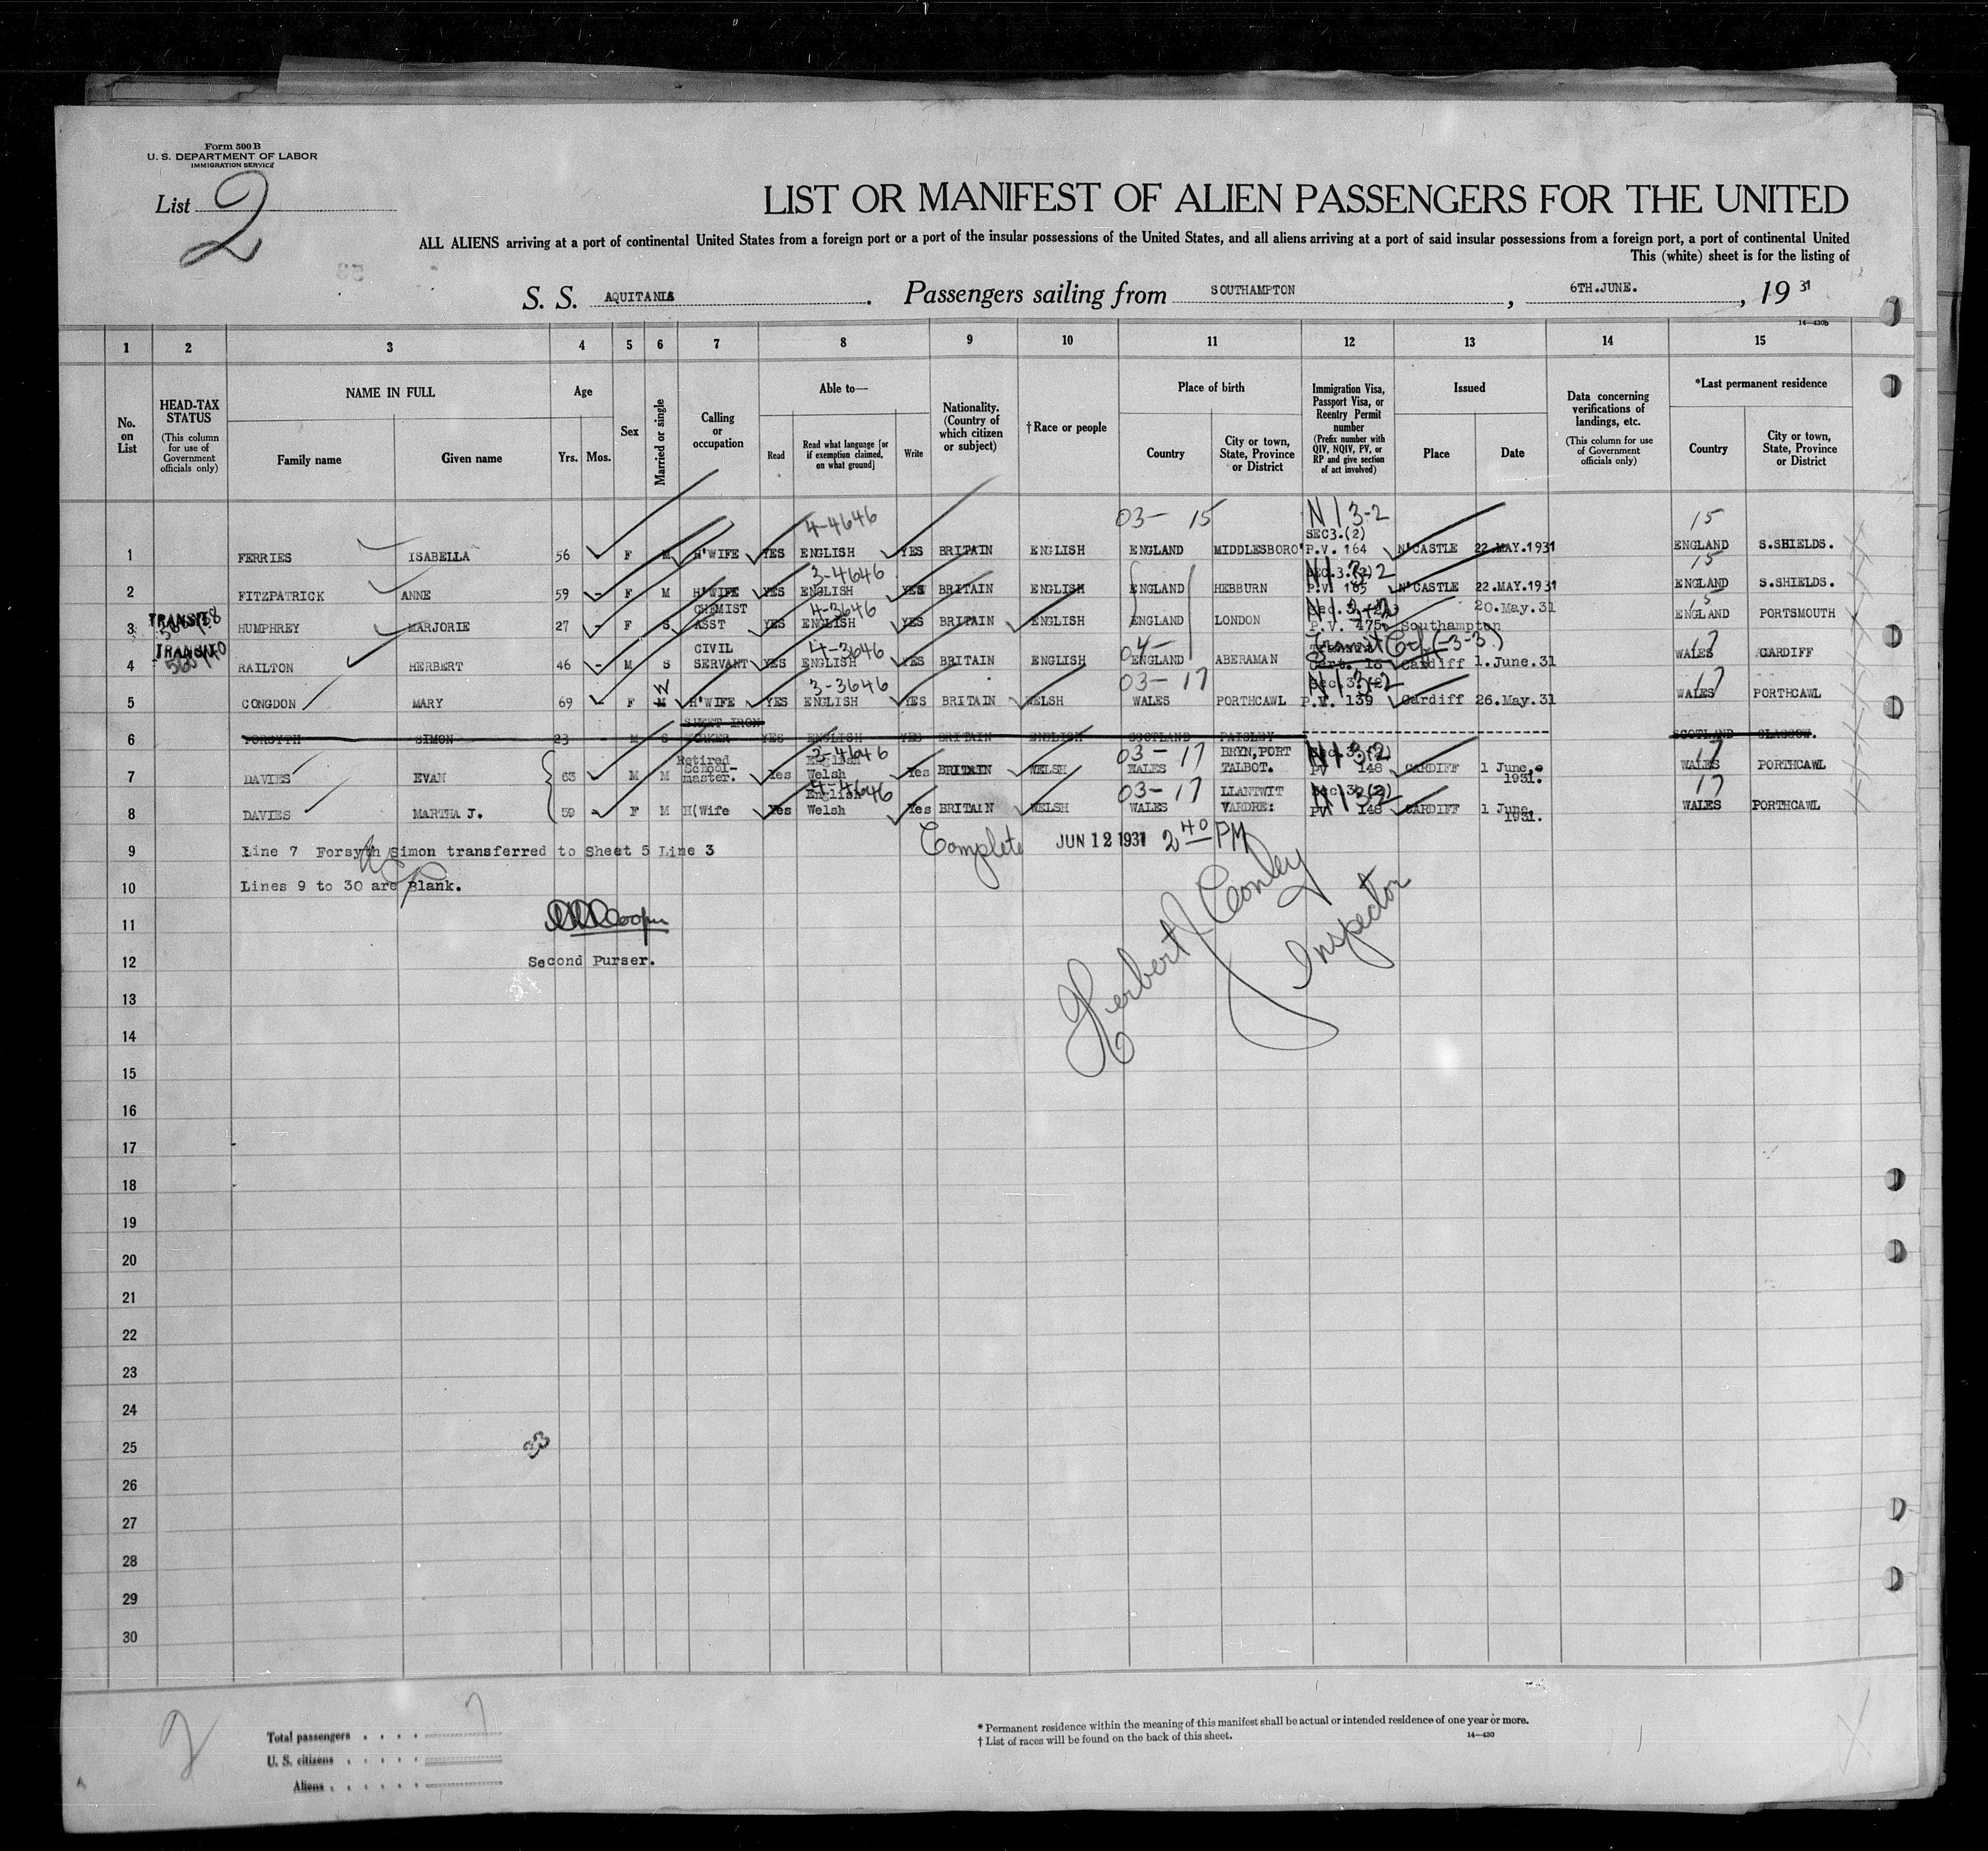 Form 500 B
U. S. DEPARTMENT OF LABOR
IMMIGRATION SERVICE
List 2
LIST OR MANIFEST OF ALIEN PASSENGERS FOR THE UNITED
ALL ALIENS arriving at a port of continental United States from a foreign port or a port of the insular possessions of the United States, and all aliens arriving at a port of said insular possessions from a foreign port, a port of continental United
This (white) sheet is for the listing of
S. S. AQUITANIA . Passengers sailing from SOUTHAMPTON , 6TH.JUNE. , 19 31
14—430b
1 2 3 4 5 6 7 8 9 10 11 12 13 14 15
No. on List
HEAD-TAX STATUS (This column for use of Government officials only)
NAME IN FULL Family name Given name
Age Yrs. Mos.
Sex
Married or single
Calling or occupation
Able to— Read Read what language [or if exemption claimed, on what ground] Write
Nationality. (Country of which citizen or subject)
†Race or people
Place of birth Country City or town, State, Province or District
Immigration Visa, Passport Visa, or Reentry Permit number (Prefix number with QIV, NQIV, PV, or RP and give section of act involved)
Issued Place Date
Data concerning verifications of landings, etc. (This column for use of Government officials only)
*Last permanent residence Country City or town, State, Province or District
4-4646 03- 15 N13-2 15
SEC3.(2)
1 FERRIES ISABELLA 56 F M H'WIFE YES ENGLISH YES BRITAIN ENGLISH ENGLAND MIDDLESBORO' P.V. 164 N'CASTLE 22.MAY.1931 ENGLAND S.SHIELDS.
3-4646 SEC.3.(2) 15
2 FITZPATRICK ANNE 59 - F M H'WIFE YES ENGLISH YES BRITAIN ENGLISH ENGLAND HEBBURN P.V. 165 N'CASTLE 22.MAY.1931 ENGLAND S.SHIELDS.
TRANSIT CHEMIST 4-3646 20.May.31 15
3 HUMPHREY MARJORIE 27 - F S ASST YES ENGLISH YES BRITAIN ENGLISH ENGLAND LONDON P.V. 475 Southampton ENGLAND PORTSMOUTH
TRANSIT CIVIL 4-3646 04- Transit Cef (-3-3) 17
4 RAILTON HERBERT 46 - M S SERVANT YES ENGLISH YES BRITAIN ENGLISH ENGLAND ABERAMAN Cert. 18 Cardiff 1.June.31 WALES CARDIFF
W 3-3646 03- 17 N13-2 17
5 CONGDON MARY 69 - F M H'WIFE YES ENGLISH YES BRITAIN WELSH WALES PORTHCAWL P.V. 139 Cardiff 26.May.31 WALES PORTHCAWL
SHEET IRON
6 FORSYTH SIMON 23 - M S WORKER YES ENGLISH YES BRITAIN ENGLISH SCOTLAND PAISLEY SCOTLAND GLASGOW.
Retired School- 3-4646 English 03- 17 BRYN,PORT N13-2 17
7 DAVIES EVAN 63 M M master. Yes Welsh Yes BRITAIN WELSH WALES TALBOT. PV 148 CARDIFF 1 June, 1931. WALES PORTHCAWL
4-4646 English 03- 17 LLANTWIT N13-2 17
8 DAVIES MARTHA J. 59 - F M H(Wife Yes Welsh Yes BRITAIN WELSH WALES VARDRE: PV 148 CARDIFF 1 June, 1931. WALES PORTHCAWL
9 Line 7 Forsyth Simon transferred to Sheet 5 Line 3 Complete JUN 12 1931 2 40 PM
10 Lines 9 to 30 are Blank.
Herbert J Conley
Inspector
11
12 Second Purser.
13
14
15
16
17
18
19
20
21
22
23
24
25
26
27
28
29
30
2
Total passengers . . . . 7
U. S. citizens . . . . .
Aliens . . . . . .
* Permanent residence within the meaning of this manifest shall be actual or intended residence of one year or more.
† List of races will be found on the back of this sheet.
14—430